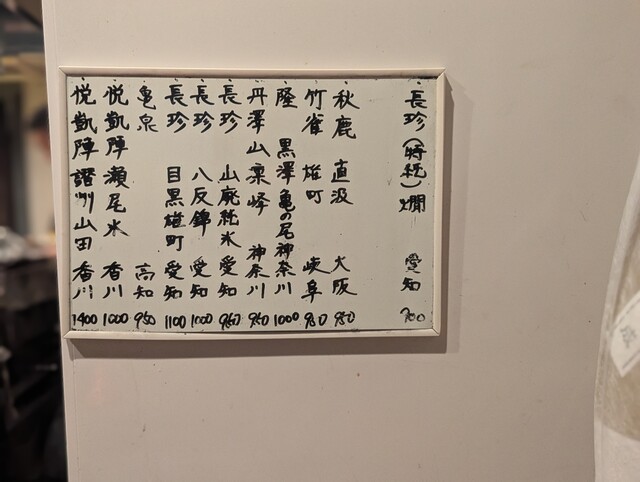 長珍(特純)燗 愛知 700
秋鹿 直汲 大阪 950
竹雀 雄町 岐阜 980
隆 黒澤亀の尾 神奈川 1000
丹澤山 凜峰 神奈川 950
長珍 山廃純米 愛知 960
長珍 八反錦 愛知 1000
長珍 目黒雄町 愛知 1100
亀泉 高知 950
悦凱陣 瀬尾米 香川 1000
悦凱陣 讃州山田 香川 1400